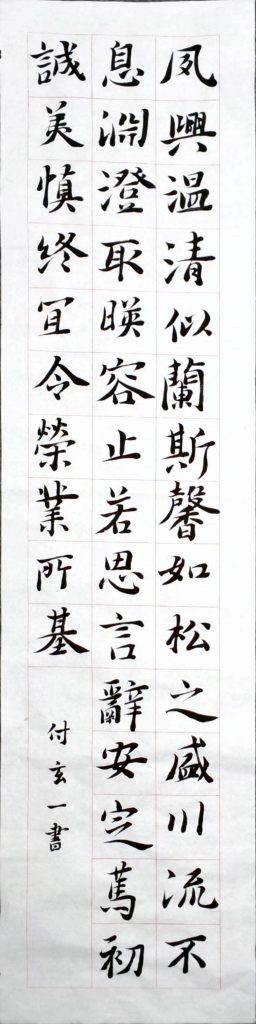 夙興温清似蘭斯馨如松之盛川流不
息淵澄取暎容止若思言辭安定篤初
誠美慎終宜令榮業所基
付玄一書